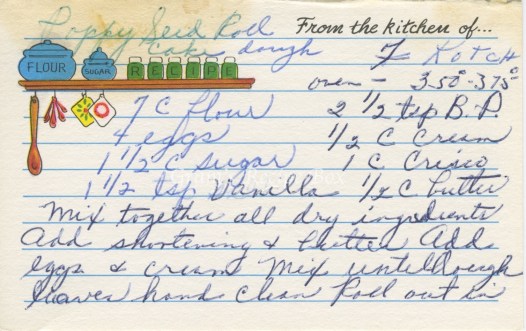 Poppy Seed Roll
cake dough
From the kitchen of...
F Kotch
oven - 350°-375°
FLOUR
SUGAR
RECIPE
7 C flour
2 1/2 tsp B.P.
4 eggs
1/2 C Cream
1 1/2 C sugar
1 C Crisco
1 1/2 tsp Vanilla
1/2 C butter
Mix together all dry ingredients
Add shortening & butter Add
eggs & cream Mix until dough
leaves hands clean Roll out in